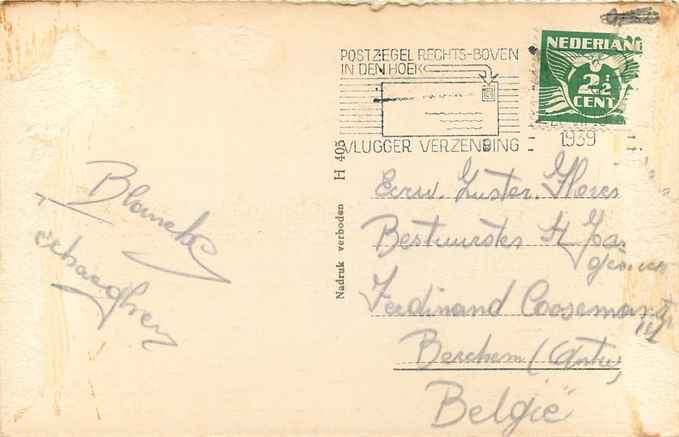 POSTZEGEL RECHTS-BOVEN
IN DEN HOEK
VLUGGER VERZENDING
1939
NEDERLAND
2½
CENT
Nadruk verboden H 405
Eerw. Zuster Flores
Bestuurster St
Ferdinand Coosemans
Berchem (Antw.
België